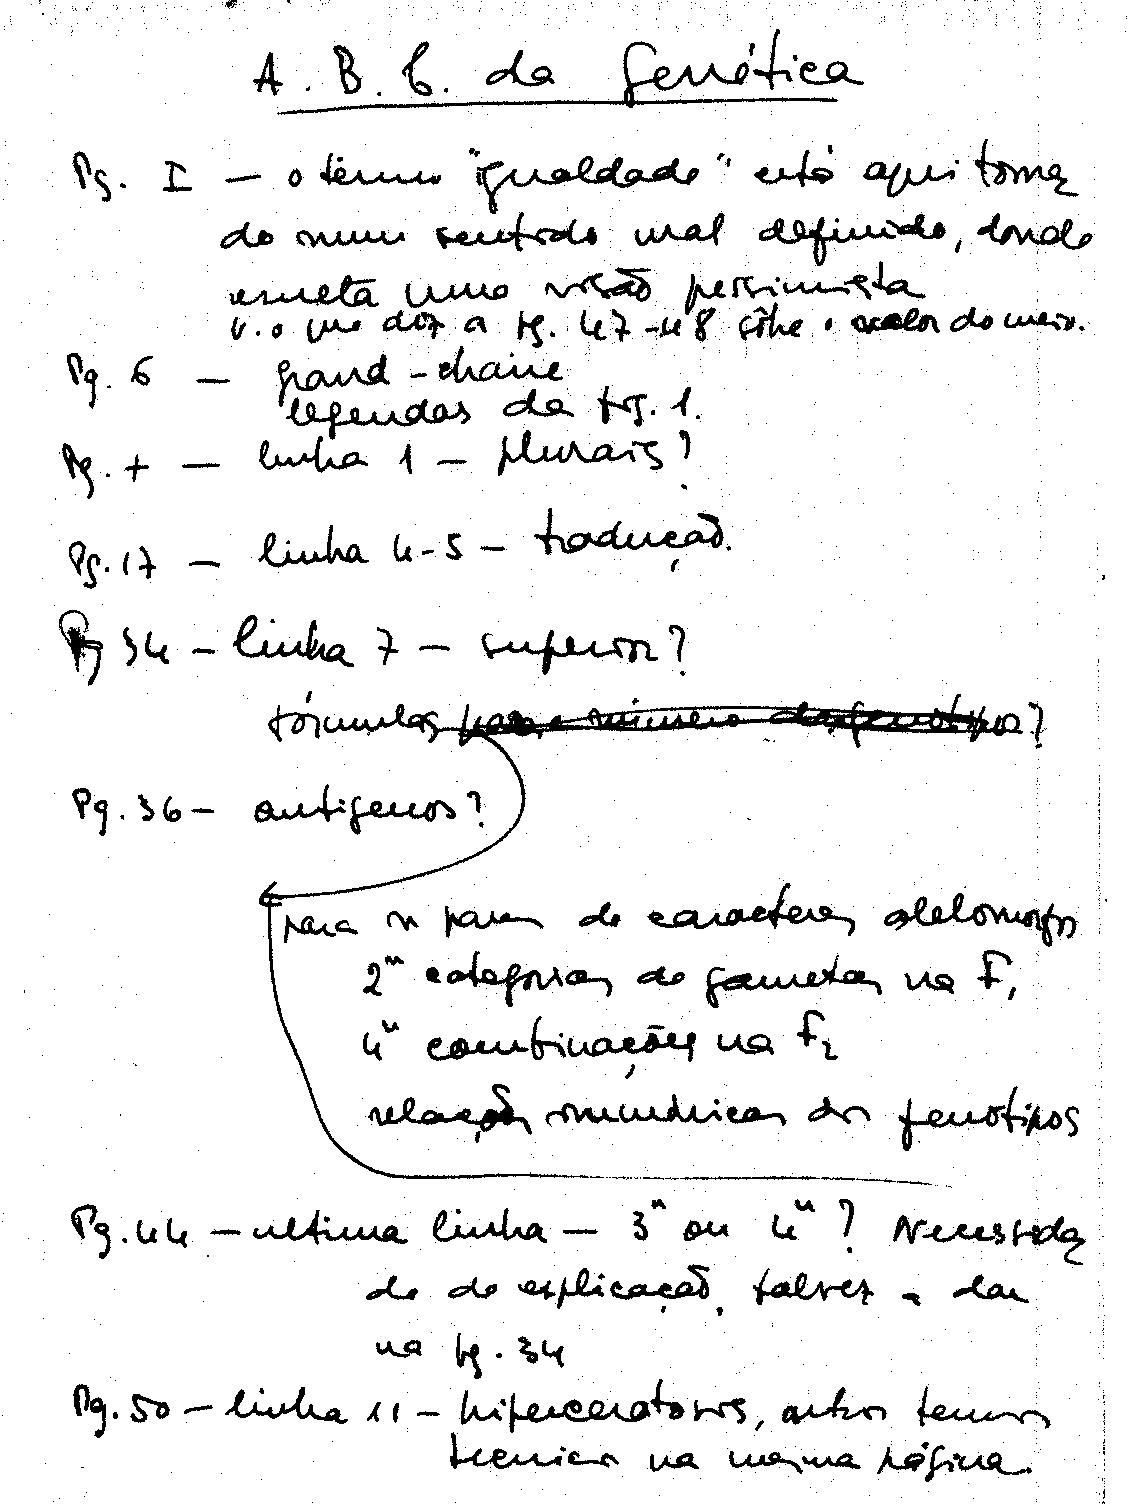 A. B. C. da Genética
Pg. I — o têrmo "igualdade" está aqui toma
do num sentido mal definido, donde
resulta uma visão pessimista
v. o que diz a pg. 47-48 sôbre o valor do meio.
Pg. 6 — grand-chaine
legendas da fig. 1.
Pg. 7 — linha 1 — plurais?
Pg. 17 — linha 4-5 — tradução.
Pg 34 — linha 7 — superior?
fórmulas para o número de fenótipos?
Pg. 36 — antigenos?
para n pares de caracteres alelomorfos
2ⁿ categorias de gametas na F₁
4ⁿ combinações na F₂
relações numéricas dos fenótipos
Pg. 44 — ultima linha — 3ⁿ ou 4ⁿ? Necessida
de de explicação, talvez a dar
na pg. 34
Pg. 50 — linha 11 — hiperceratosis, outros termos
tecnicos na mesma página.